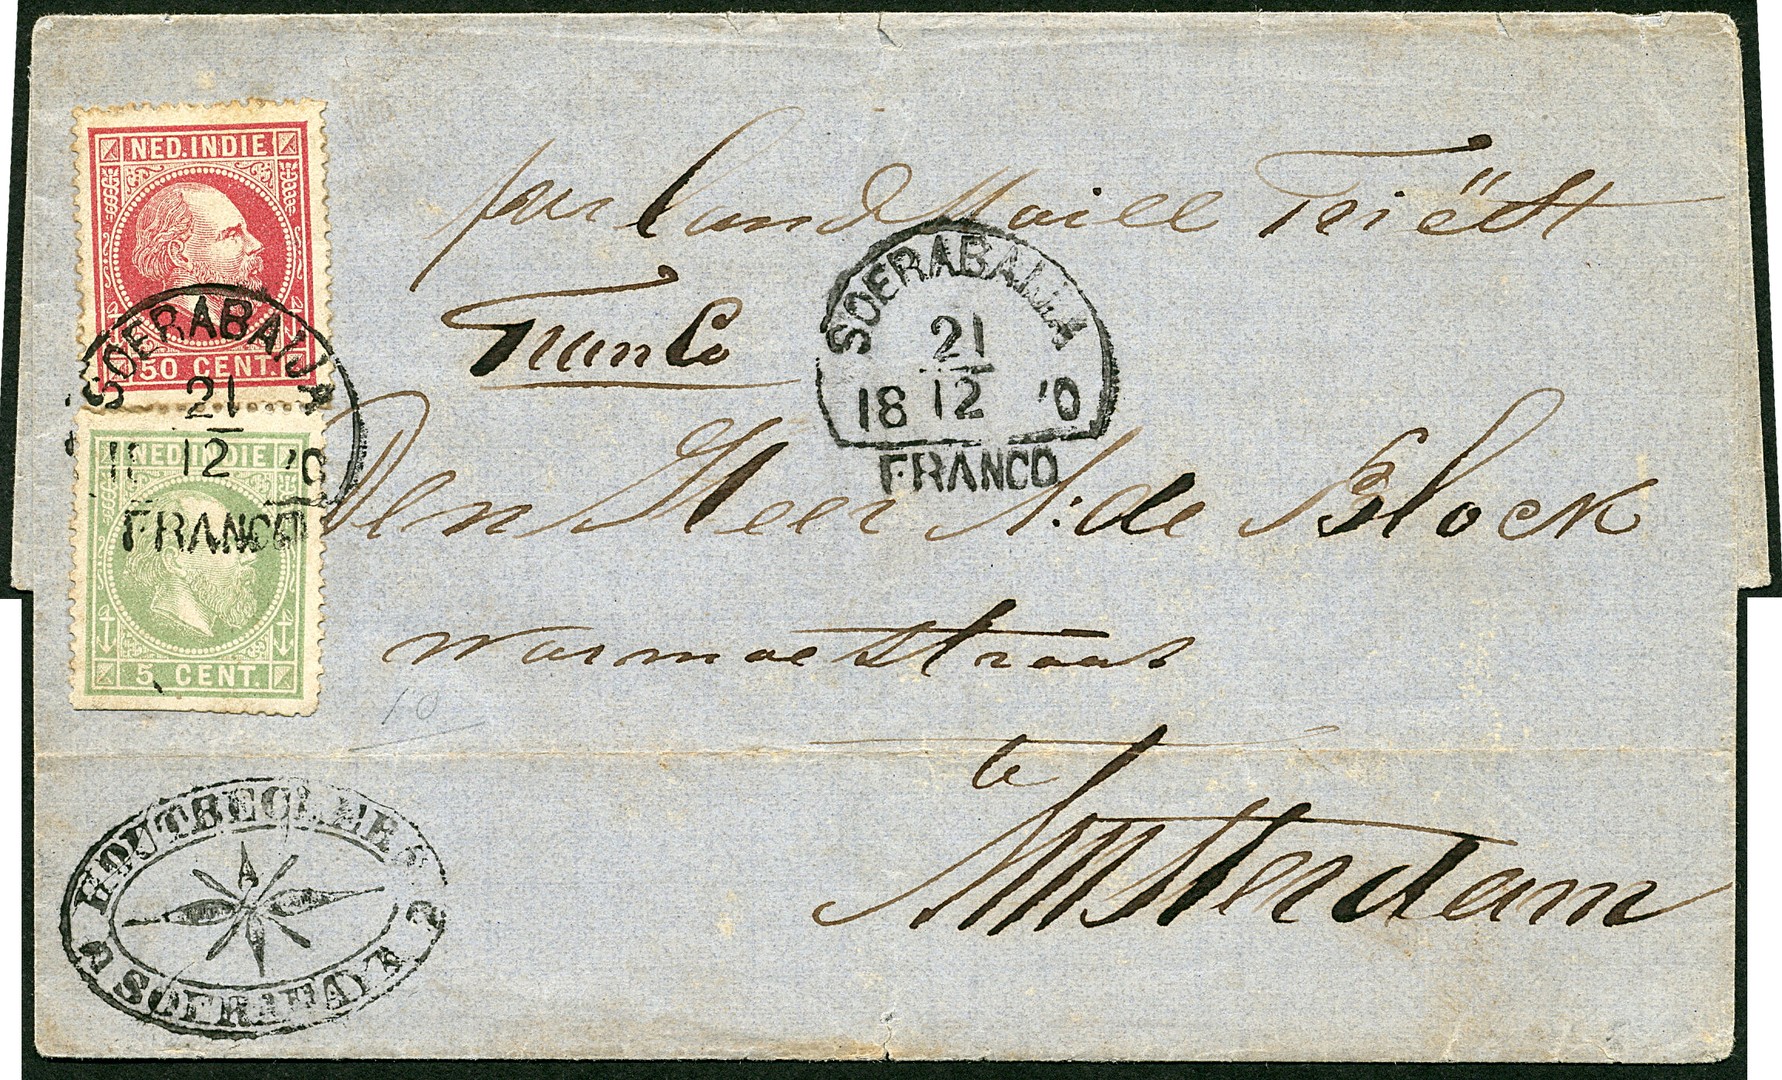 NED. INDIE
50 CENT.
NED. INDIE
5 CENT.
SOERABAIJA
21
12
FRANCO
per Land Maill Triëst
Franco
SOERABAIJA
21
18 12 70
FRANCO
Den Heer de Block
Warmoestraat
te
Amsterdam
10